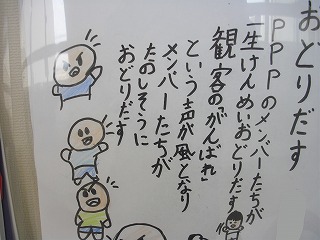 おどりだす
PPPのメンバーたちが
一生けんめいおどりだす
観客の「がんばれ」
という声が風となり
メンバーたちが
たのしそうに
おどりだす